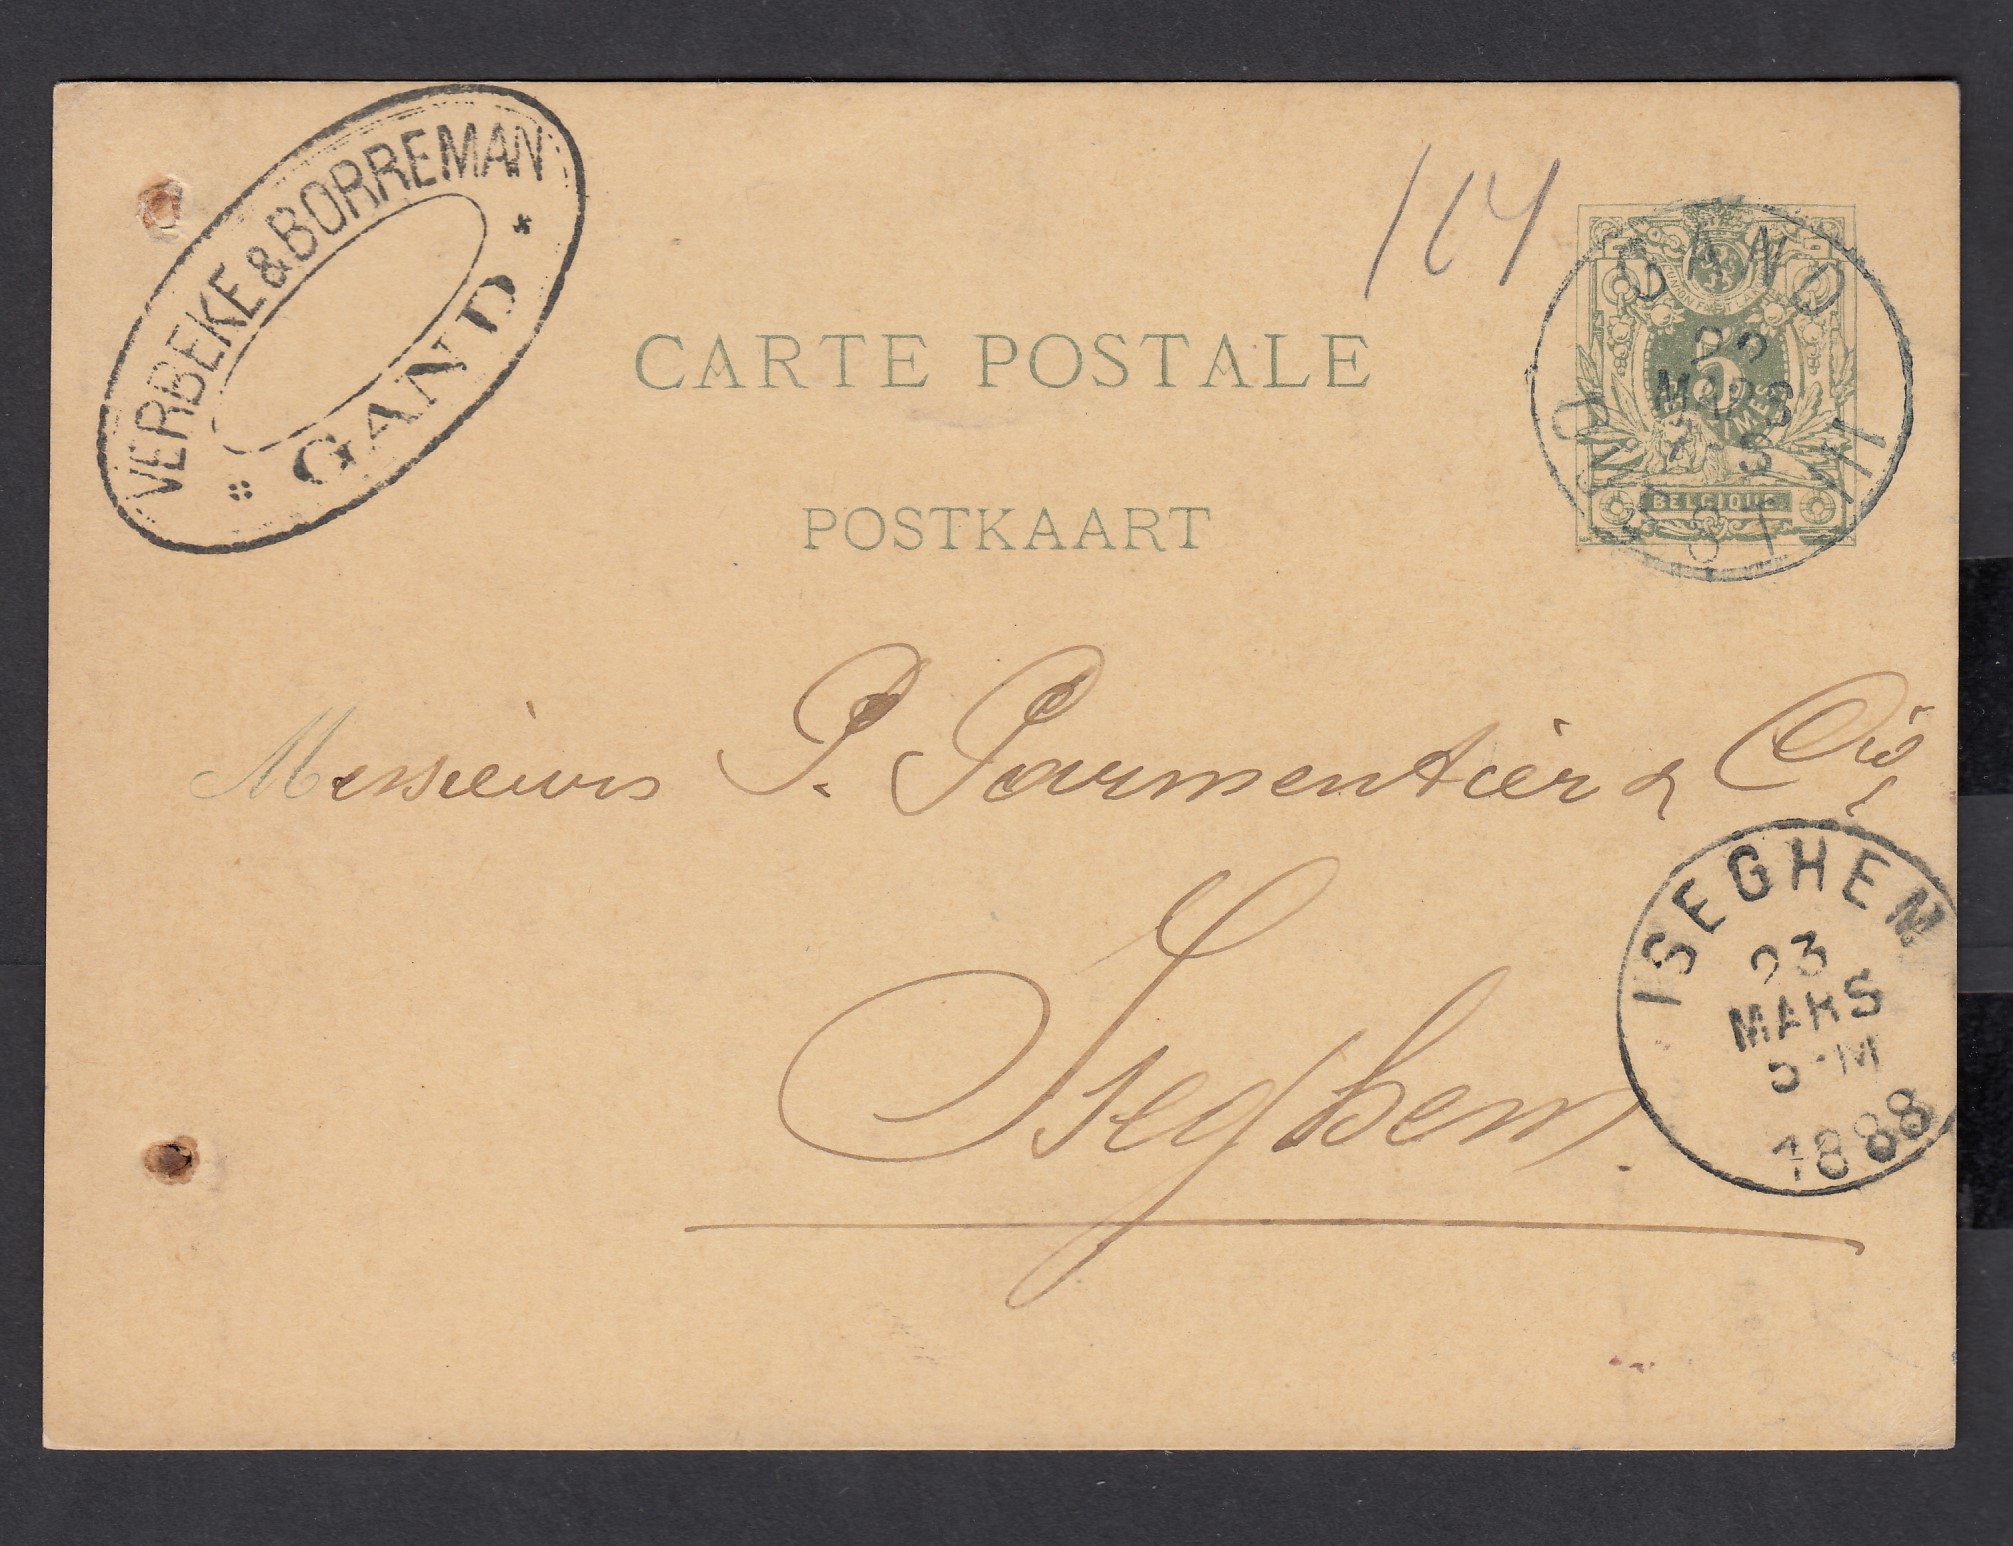 VERBEKE & BORREMAN
GAND
164
CARTE POSTALE
POSTKAART
GAND
22
MARS
BELGIQUE
Messieurs P. Parmentier & Cie
Iseghem.
ISEGHEM
23
MARS
1888